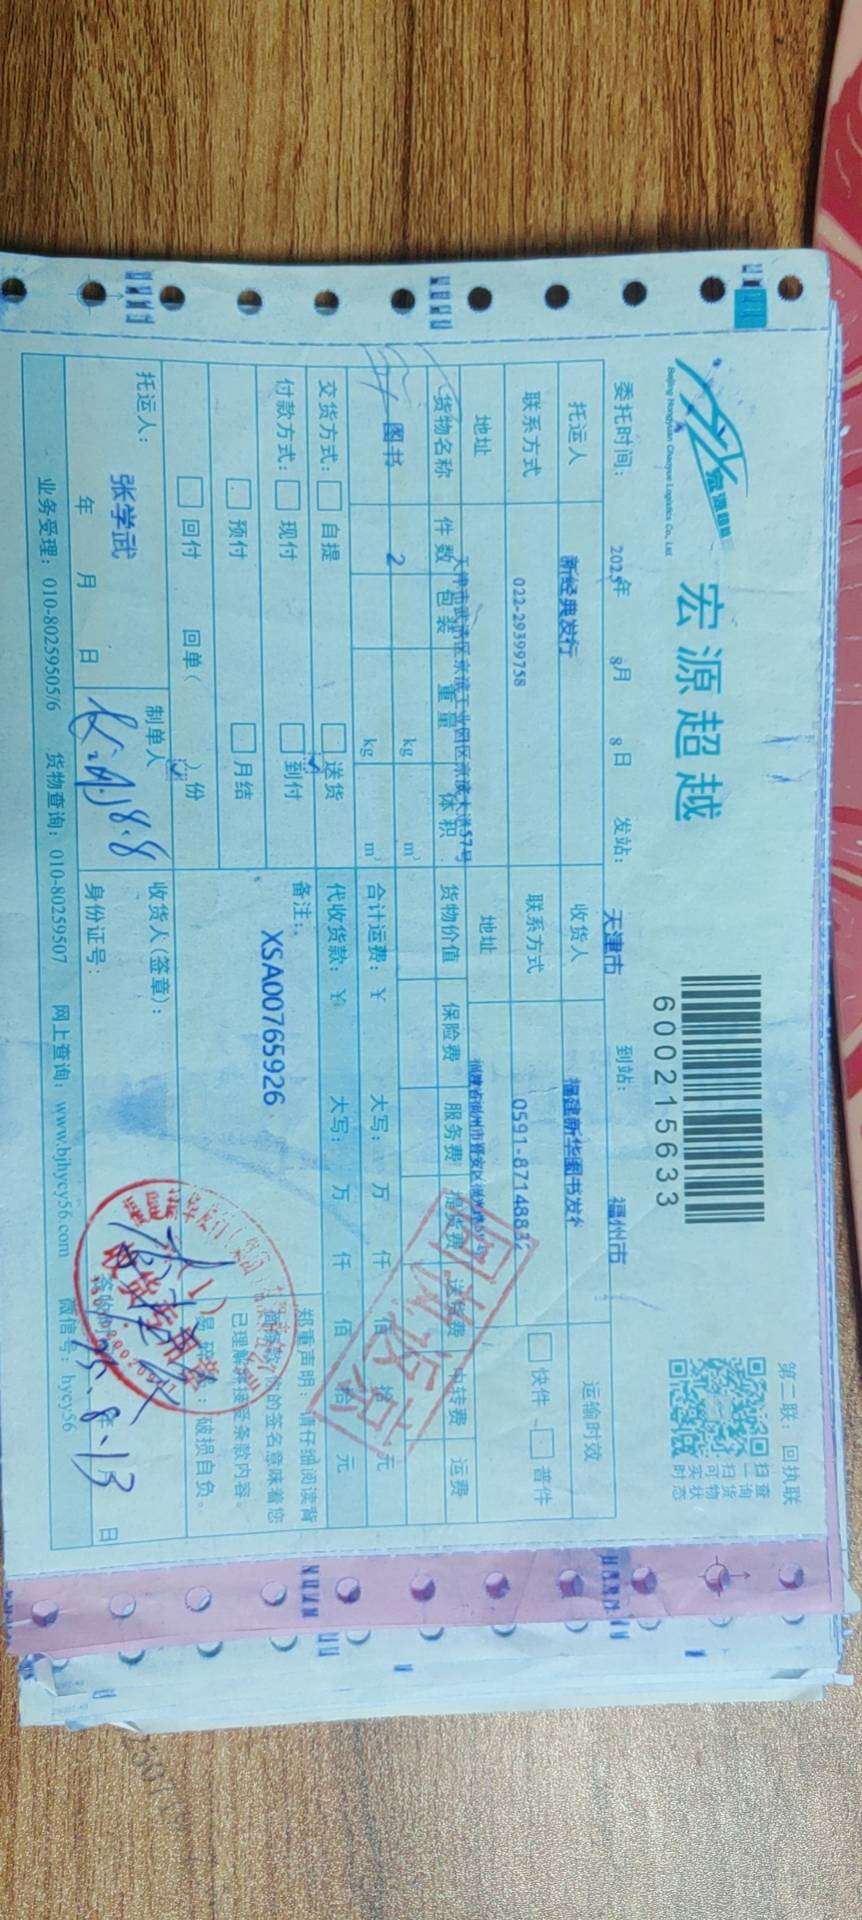 第二联：回执联
宏源超越
Beijing Hongyuan Chaoyue Logistics Co., Ltd
宏源超越
6002215633
扫一扫
查询货物实时状态
委托时间： 2025年 8月 8日 发站： 天津市 到站： 福州市
托运人 新经典发行 收货人 福建新华图书发 运输时效
联系方式 022-29399758 联系方式 0591-8714883 快件 普件
地址 天津市武清区京滨工业园区京滨大道57号 地址 福建省福州市晋安区
货物名称 件数 包装 重量 体积 货物价值 保险费 服务费 提货费 送货费 中转费 运费
图书 2 kg m³
kg m³ 合计运费：￥ 大写： 万 仟 佰 拾 元
交货方式： 自提 送货 代收货款：￥ 大写： 万 仟 佰 拾 元
付款方式： 现付 到付 备注：
预付 月结 XSA00765926
回付 回单( )份
郑重声明：请仔细阅读背
的签名意味着您
已理解并接受条款内容。
易碎 ：破损自负。
托运人： 张学武 制单人 收货人(签章)：
年 月 日 8.8 身份证号： 25.8.13 日
收货专用章
(1)
业务受理：010-80259505/6 货物查询：010-80259507 网上查询：www.bjhycy56.com 微信号：hycy56